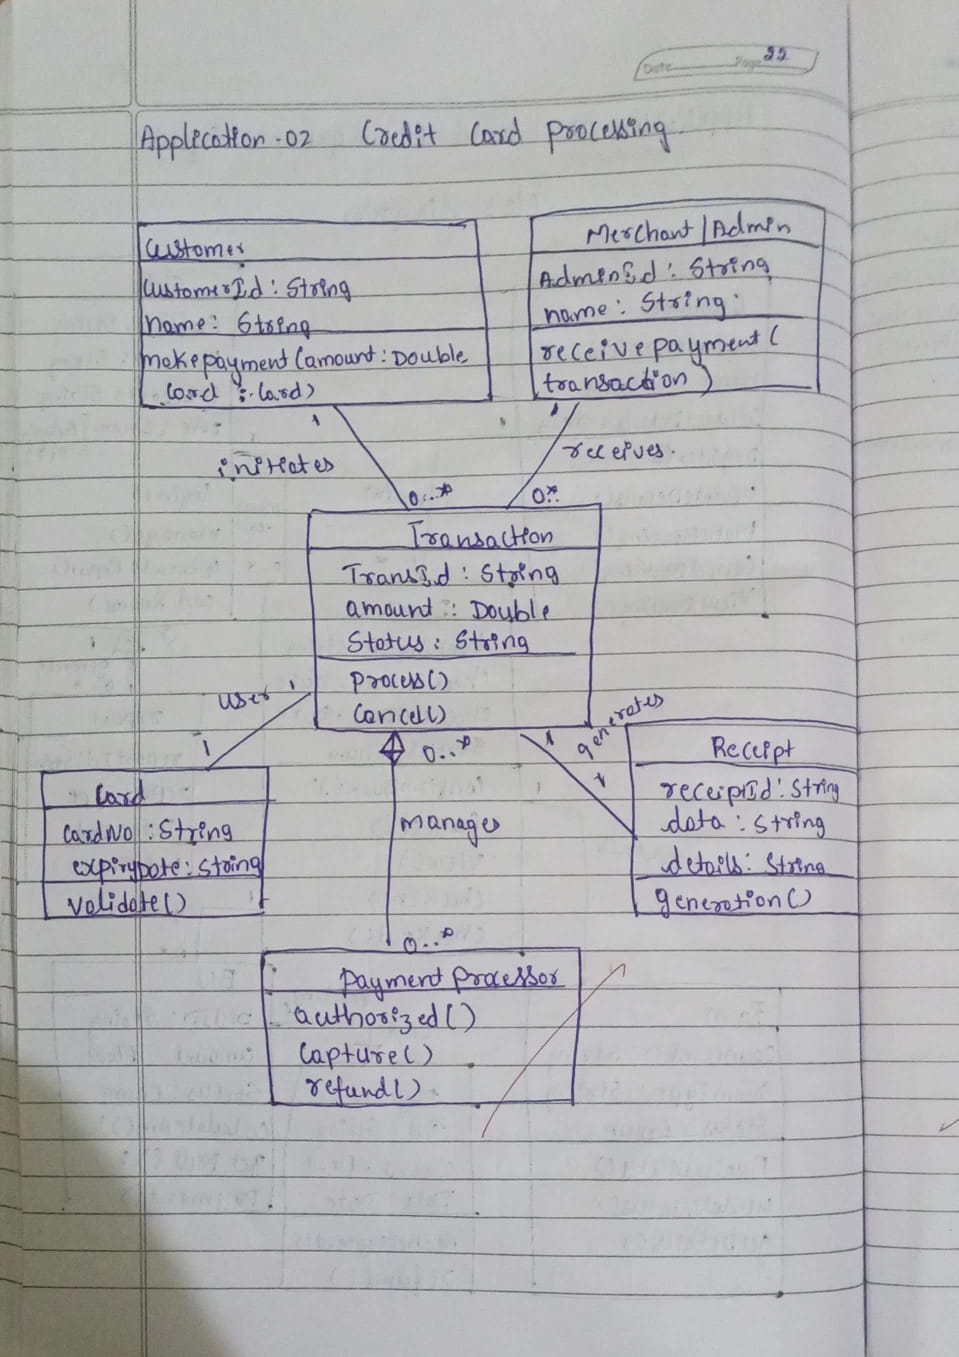 Date
Page 22
Application-02 Credit Card Processing.
Customer
CustomerId : String
name : String
makepayment (amount : Double
Card : Card)
Merchant / Admin
AdminId : String
name : String
receivepayment (
transaction)
1
initiates
0...*
1
receives.
0*..
Transaction
TransId : String
amount : Double
Status : String
Process()
Cancel()
user 1
1
Card
cardNo : String
expiryDate : String
validate()
0..*
manages
0..*
1
generates
1
Receipt
receiptId : String
data : String
details : String
generation()
Payment Processor
authorized()
Capture()
refund()